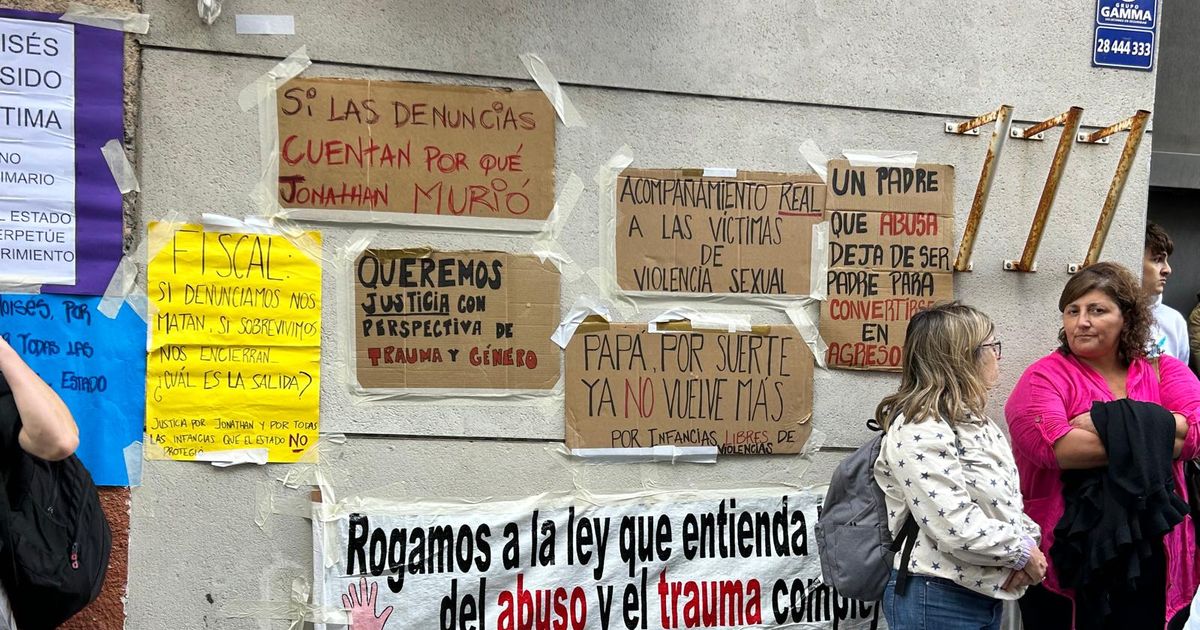 ISÉS
SIDO
TIMA
NO
IMARIO
EL ESTADO
ERPETÚE
RIMIENTO
OISES, POR
TODAS LAS
ESTADO
FISCAL:
SI DENUNCIAMOS NOS
MATAN, SI SOBREVIVIMOS
NOS ENCIERRAN...
¿CUÁL ES LA SALIDA?
JUSTICIA POR JONATHAN Y POR TODAS
LAS INFANCIAS QUE EL ESTADO NO
PROTEGIÓ
SI LAS DENUNCIAS
CUENTAN POR QUÉ
JONATHAN MURIÓ
QUEREMOS
JUSTICIA CON
PERSPECTIVA DE
TRAUMA Y GÉNERO
ACOMPAÑAMIENTO REAL
A LAS VÍCTIMAS
DE
VIOLENCIA SEXUAL
UN PADRE
QUE ABUSA
DEJA DE SER
PADRE PARA
CONVERTIRSE
EN
AGRESO
PAPA, POR SUERTE
YA NO VUELVE MÁS
POR INFANCIAS LIBRES DE
VIOLENCIAS
Rogamos a la ley que entienda
del abuso y el trauma comple
GRUPO
GAMMA
28 444 333